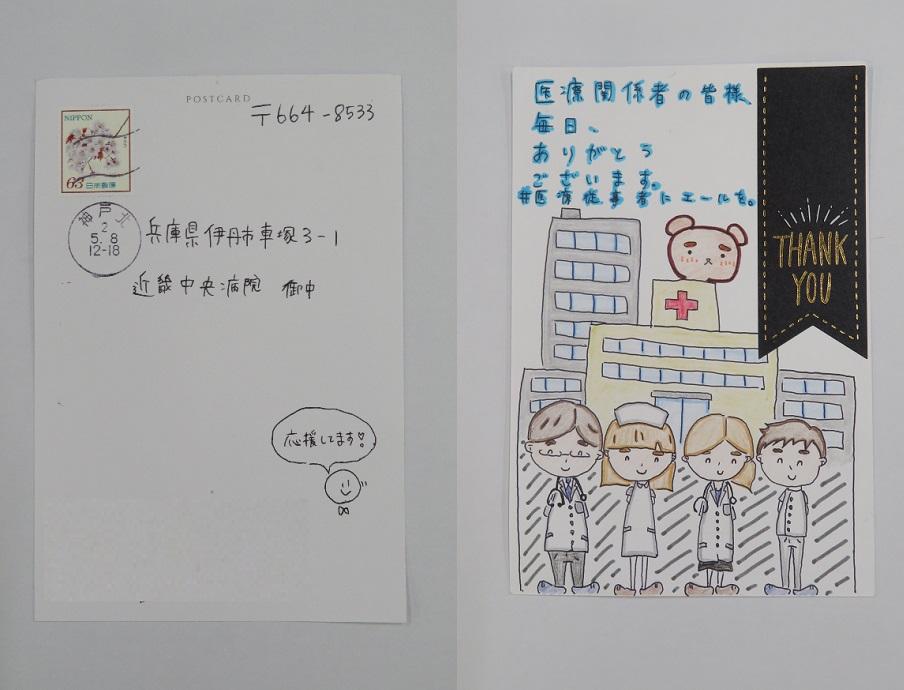 POSTCARD
〒664-8533
NIPPON
63 日本郵便
神戸北
2
5.8
12-18
兵庫県伊丹市車塚3-1
近畿中央病院 御中
応援してます♡
医療関係者の皆様、
毎日、
ありがとう
ございます。
#医療従事者にエールを。
THANK
YOU